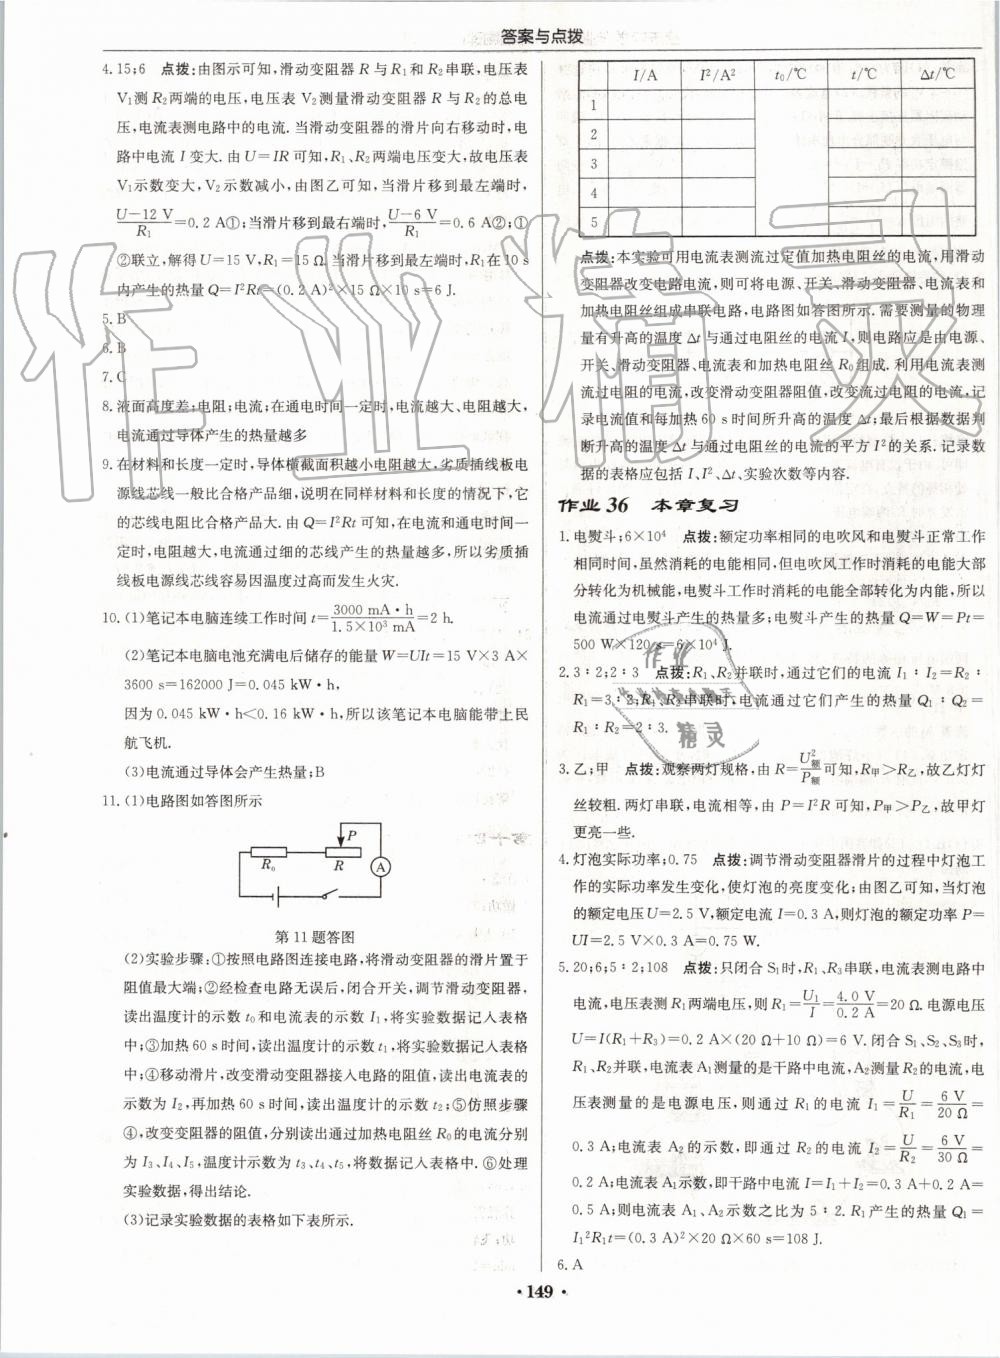 答案与点拨
4. 15;6　点拨:由图示可知,滑动变阻器 R 与 R₁ 和 R₂ 串联,电压表
V₁测 R₂ 两端的电压,电压表 V₂测量滑动变阻器 R 与 R₂ 的总电
压,电流表测电路中的电流. 当滑动变阻器的滑片向右移动时,电
路中电流 I 变大. 由 U=IR 可知,R₁、R₂ 两端电压变大,故电压表
V₁示数变大,V₂ 示数减小,由图乙可知,当滑片移到最左端时,
(U−12 V)/R₁=0.2 A①;当滑片移到最右端时,(U−6 V)/R₁=0.6 A②;①
②联立,解得U=15 V,R₁=15 Ω. 当滑片移到最左端时,R₁在 10 s
内产生的热量Q=I²Rt=(0.2 A)²×15 Ω×10 s=6 J.
5. B
6. B
7. C
8. 液面高度差;电阻;电流;在通电时间一定时,电流越大、电阻越大,
电流通过导体产生的热量越多
9. 在材料和长度一定时,导体横截面积越小电阻越大,劣质插线板电
源线芯线一般比合格产品细,说明在同样材料和长度的情况下,它
的芯线电阻比合格产品大. 由 Q=I²Rt 可知,在电流和通电时间一
定时,电阻越大,电流通过细的芯线产生的热量越多,所以劣质插
线板电源线芯线容易因温度过高而发生火灾.
10. (1)笔记本电脑连续工作时间 t=3000 mA·h/1.5×10³ mA=2 h.
(2)笔记本电脑电池充满电后储存的能量W=UIt=15 V×3 A×
3600 s=162000 J=0.045 kW·h,
因为 0.045 kW·h<0.16 kW·h,所以该笔记本电脑能带上民
航飞机.
(3)电流通过导体会产生热量;B
11. (1)电路图如答图所示
P
R₀
R
A
第 11 题答图
(2)实验步骤:①按照电路图连接电路,将滑动变阻器的滑片置于
阻值最大端;②经检查电路无误后,闭合开关,调节滑动变阻器,
读出温度计的示数 t₀ 和电流表的示数 I₁,将实验数据记入表格
中;③加热 60 s 时间,读出温度计的示数 t₁,将实验数据记入表格
中;④移动滑片,改变滑动变阻器接入电路的阻值,读出电流表的
示数为 I₂,再加热 60 s 时间,读出温度计的示数 t₂;⑤仿照步骤
④,改变变阻器的阻值,分别读出通过加热电阻丝 R₀的电流分别
为 I₃、I₄、I₅,温度计示数为 t₃、t₄、t₅,将数据记入表格中. ⑥处理
实验数据,得出结论.
(3)记录实验数据的表格如下表所示.
I/A　I²/A²　t₀/℃　t/℃　Δt/℃
1
2
3
4
5
点拨:本实验可用电流表测流过定值加热电阻丝的电流,用滑动
变阻器改变电路电流,则可将电源、开关、滑动变阻器、电流表和
加热电阻丝组成串联电路,电路图如答图所示. 需要测量的物理
量有升高的温度 Δt 与通过电阻丝的电流 I,则电路应是由电源、
开关、滑动变阻器、电流表和加热电阻丝 R₀组成. 利用电流表测
流过电阻的电流,改变滑动变阻器阻值,改变流过电阻的电流,记
录电流值和每加热 60 s 时间所升高的温度 Δt;最后根据数据判
断升高的温度 Δt 与通过电阻丝的电流的平方 I² 的关系. 记录数
据的表格应包括 I、I²、Δt、实验次数等内容.
作业 36　本章复习
1. 电熨斗;6×10⁴　点拨:额定功率相同的电吹风和电熨斗正常工作
相同时间,虽然消耗的电能相同,但电吹风工作时消耗的电能大部
分转化为机械能,电熨斗工作时消耗的电能全部转化为内能,所以
电流通过电熨斗产生的热量多;电熨斗产生的热量Q=W=Pt=
500 W×120 s=6×10⁴ J.
2. 3∶2;2∶3　点拨:R₁、R₂并联时,通过它们的电流 I₁∶I₂=R₂∶
R₁=3∶2;R₁、R₂串联时,电流通过它们产生的热量 Q₁∶Q₂=
R₁∶R₂=2∶3.
3. 乙;甲　点拨:观察两灯规格,由 R=U²额/P额可知,R甲>R乙,故乙灯灯
丝较粗. 两灯串联,电流相等,由 P=I²R 可知,P甲>P乙,故甲灯
更亮一些.
4. 灯泡实际功率;0.75　点拨:调节滑动变阻器滑片的过程中灯泡工
作的实际功率发生变化,使灯泡的亮度变化;由图乙可知,当灯泡
的额定电压U=2.5 V,额定电流 I=0.3 A,则灯泡的额定功率 P=
UI=2.5 V×0.3 A=0.75 W.
5. 20;6;5∶2;108　点拨:只闭合 S₁时,R₁、R₃串联,电流表测电路中
电流,电压表测 R₁两端电压,则 R₁=U₁/I=4.0 V/0.2 A=20 Ω. 电源电压
U=I(R₁+R₃)=0.2 A×(20 Ω+10 Ω)=6 V. 闭合 S₁、S₂、S₃时,
R₁、R₂并联,电流表 A₁测量的是干路中电流,A₂测量 R₂的电流,电
压表测量的是电源电压,则通过 R₁ 的电流 I₁=U/R₁=6 V/20 Ω=
0.3 A;电流表 A₂ 的示数,即通过 R₂ 的电流 I₂=U/R₂=6 V/30 Ω=
0.2 A;电流表 A₁示数,即干路中电流 I=I₁+I₂=0.3 A+0.2 A=
0.5 A;则电流表 A₁、A₂ 示数之比为 5∶2. R₁产生的热量 Q₁=
I₁²R₁t=(0.3 A)²×20 Ω×60 s=108 J.
6. A
·149·
作业精灵
作业
精灵